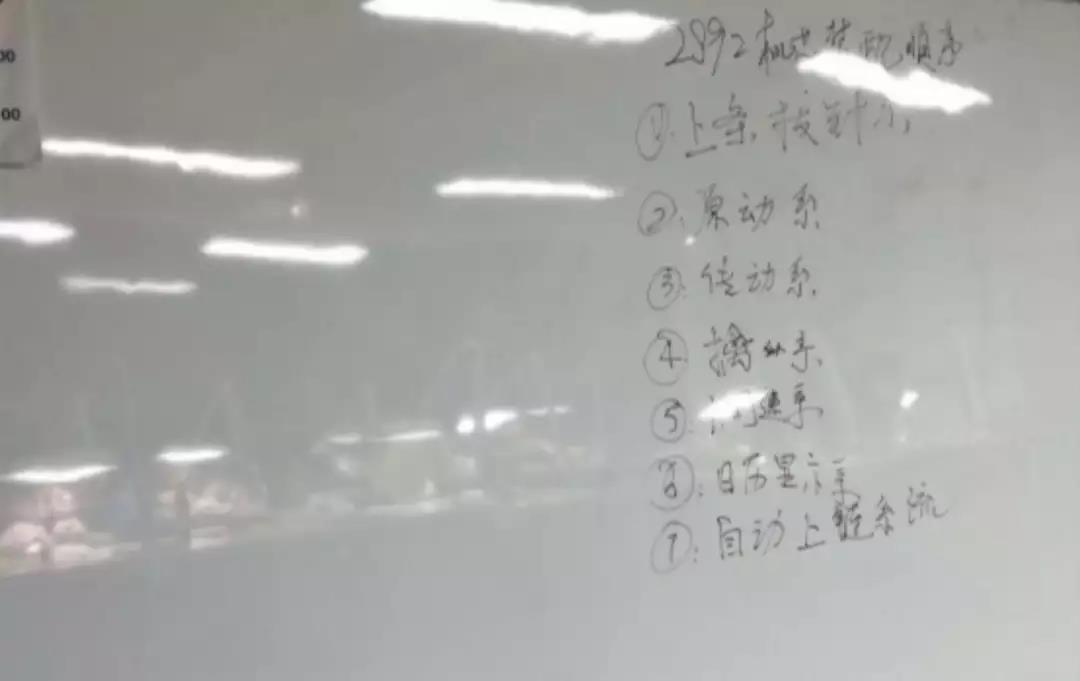 00
00
2892机芯装配顺序
①.上条.拨针系
②.原动系
③.传动系
④ 擒纵系
⑤.调速系
⑥.日历显示系
⑦.自动上链系统